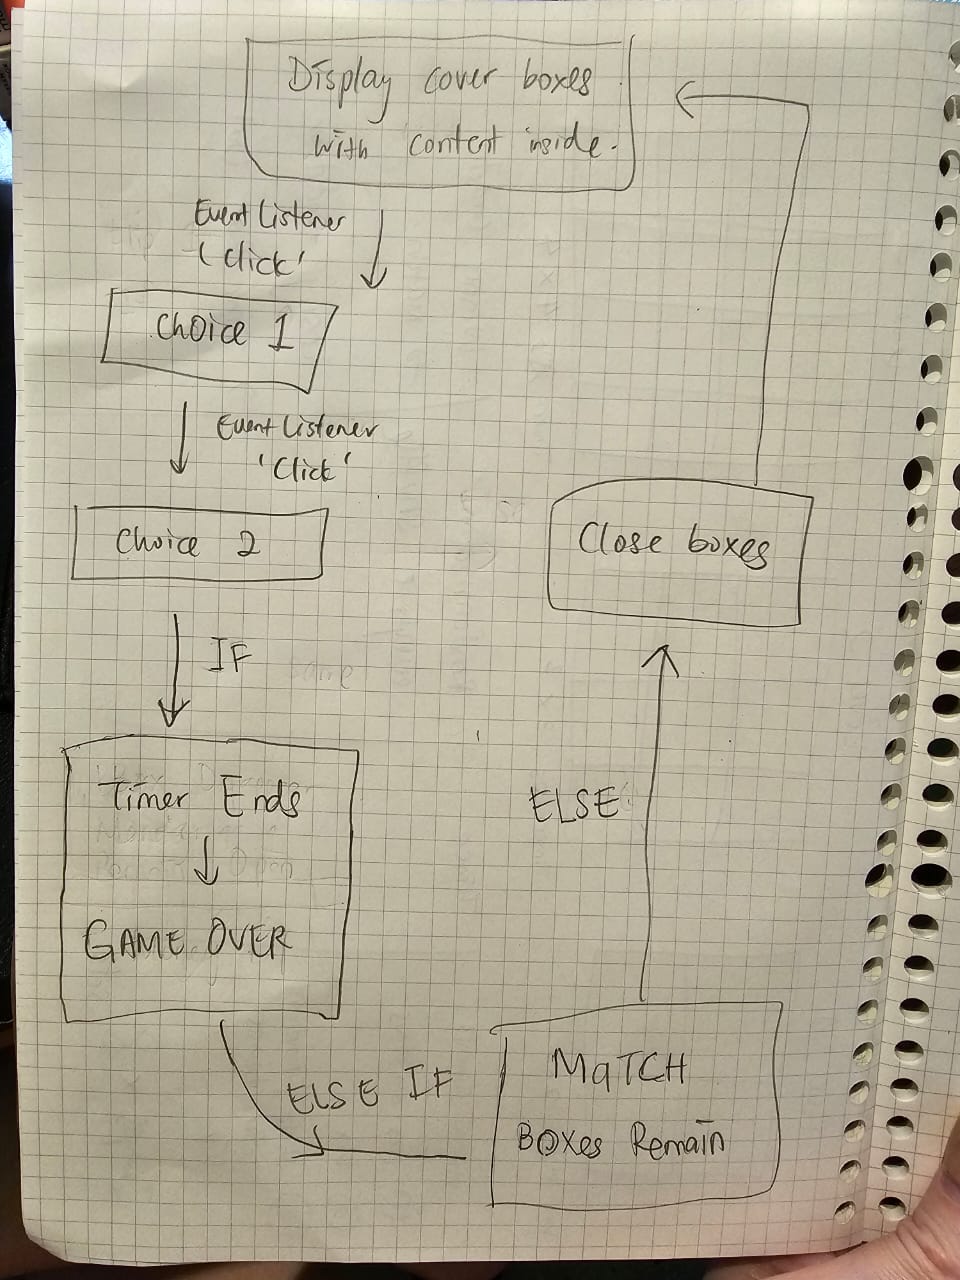 Display cover boxes
with content inside.
Event Listener
'Click'
Choice 1
Event Listener
'Click'
Choice 2
IF
Timer Ends
GAME OVER
ELSE IF
MaTCH
Boxes Remain
ELSE
Close boxes